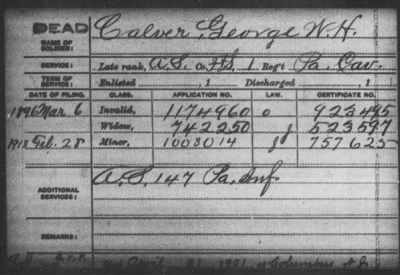 DEAD
NAME OF SOLDIER: Calver, George W. H.
SERVICE: Late rank, A.S. Co. 1 Reg't Pa. Cav.
TERM OF SERVICE: Enlisted , 1 Discharged , 1
DATE OF FILING. CLASS. APPLICATION NO. LAW. CERTIFICATE NO.
1896 Mar 6 Invalid, 1174960 923495
Widow, 742250 523597
1913 Feb. 28 Minor, 1003014 757625
ADDITIONAL SERVICES: A.S. 147 Pa. Inf
REMARKS: